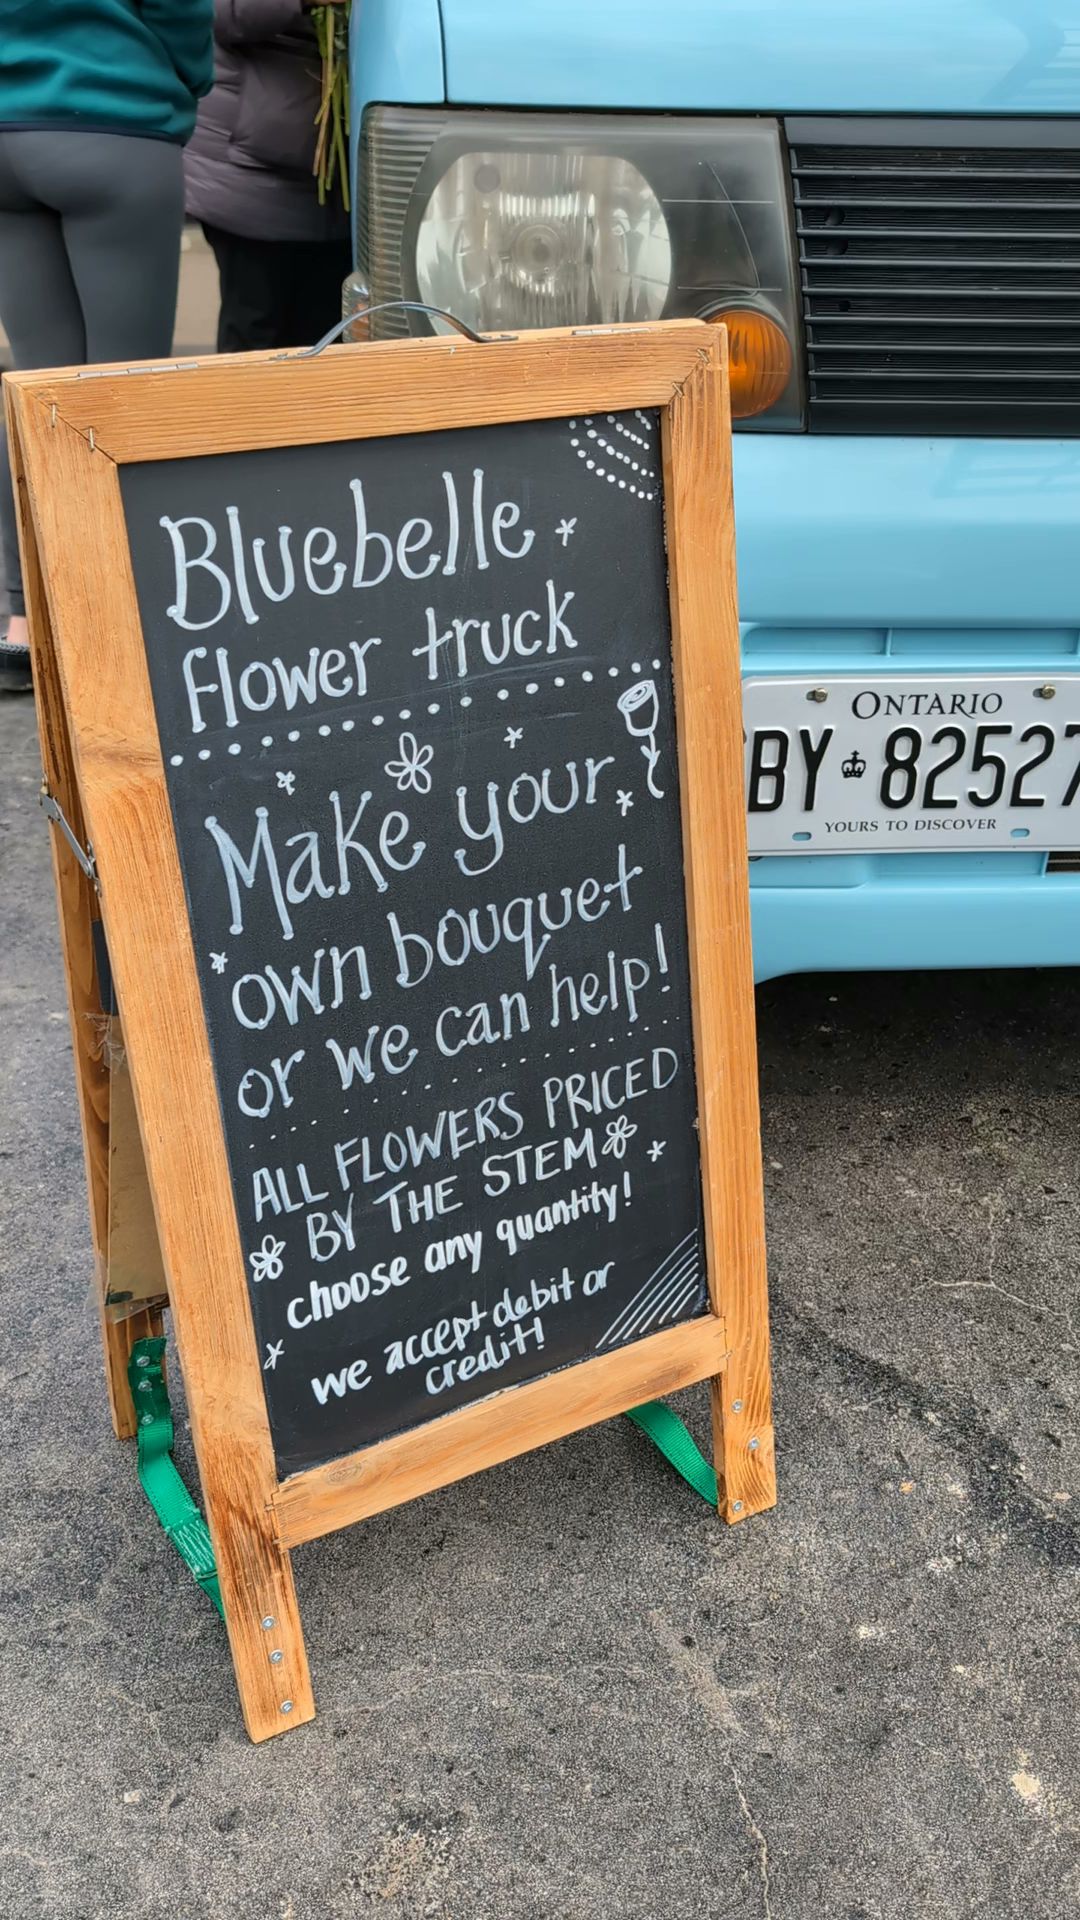 Bluebelle
flower truck
Make your
own bouquet
or we can help!
ALL FLOWERS PRICED
BY THE STEM
choose any quantity!
we accept debit or
credit!
ONTARIO
BY 82527
YOURS TO DISCOVER